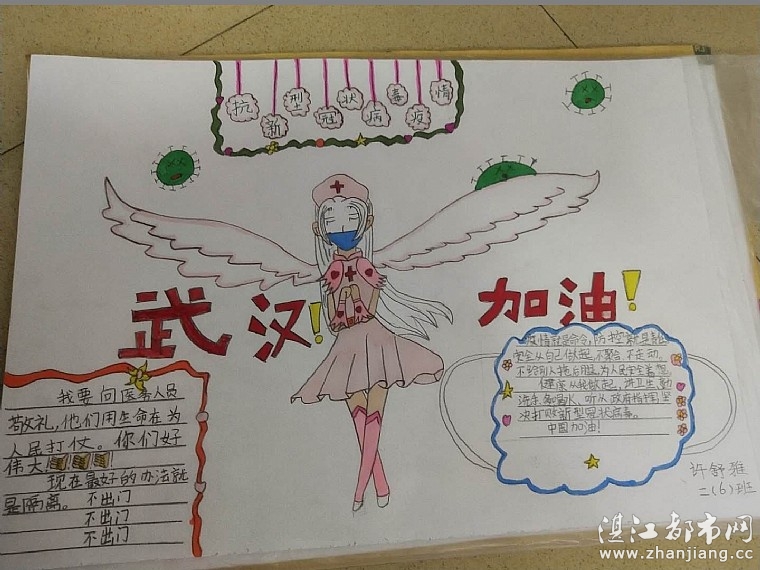 抗新型冠状病毒疫情
武汉! 加油!
我要向医务人员
敬礼,他们用生命在为
人民打仗。你们好
伟大!
现在最好的办法就
是隔离。不出门
不出门
不出门
疫情就是命令,防控就是责
安全从自己做起,不聚会不走动。
不给别人拖后腿,为人民
健康从我做起,讲卫生,勤
洗手,听从政府指挥,坚
决打败新型冠状病毒。
中国加油!
许舒雅
二(6)班
湛江都市网
www.zhanjiang.cc